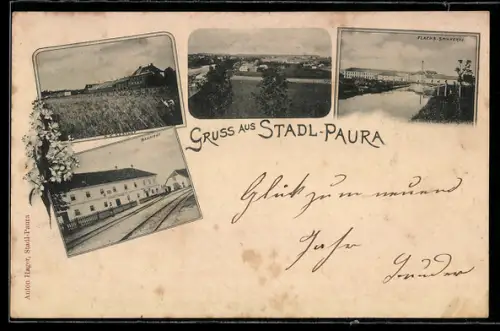 FLACHS-SPINNEREI
BAHNHOF
GRUSS AUS STADL-PAURA
Glück zum neuen
Jahr
Anton Hager, Stadl-Paura